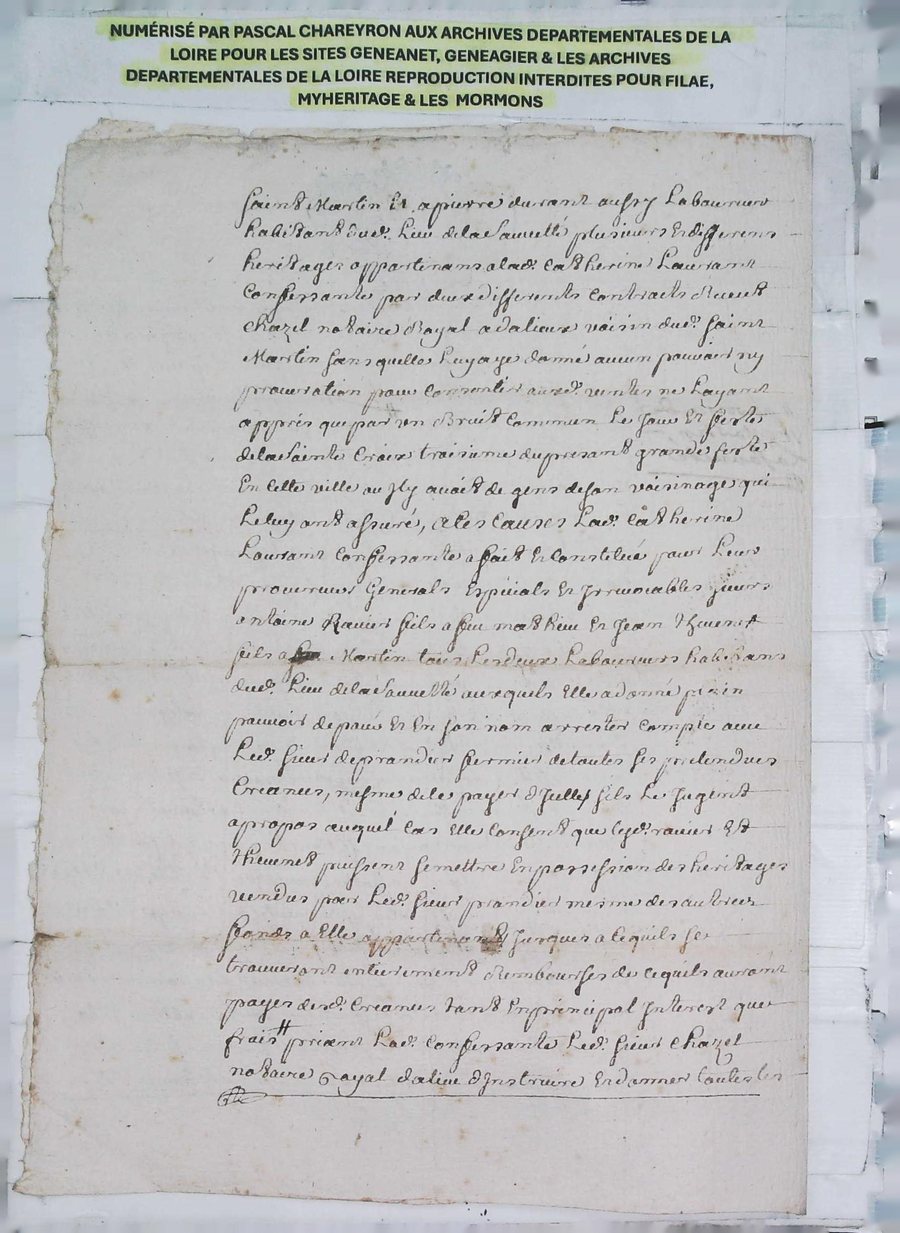 NUMÉRISÉ PAR PASCAL CHAREYRON AUX ARCHIVES DEPARTEMENTALES DE LA
LOIRE POUR LES SITES GENEANET, GENEAGIER & LES ARCHIVES
DEPARTEMENTALES DE LA LOIRE REPRODUCTION INTERDITES POUR FILAE,
MYHERITAGE & LES MORMONS
saint Martin Et a pierre durant aussy Laboureur
habitant dud. Lieu dela Sauvetté plusieurs Et differens
heritages appartenans a lad. Catherine Laurant
Confessante par deux differents Contracts Receut
Chazel notaire Royal a dalieux voisin dud. Saint
Martin sans quelle Luy aye donné aucun pouvoir ny
procuration pour Consentir auxd. ventes ne Layant
appris que par un Bruit Commun Le Jour Et feste
dela Sainte Croix troisieme du presant grande feste
En Cette ville ou Jly avoit de gens de son voisinage qui
Le luy ont assuré, a Ces Causes Lad. Catherine
Laurant Confessante a fait Et Constitué pour Leur
procureur Generals Especials Et Jrrevocables sieurs
antoine Ravier fils a feu mathieu Et Jean thevenet
fils a Martin tous Les deux Laboureurs habitans
dud. Lieu dela Sauvetté auxquels Elle a donné plein
pouvoir de pour Et En son nom arrester Compte avec
Led. sieur de prandier fermier de toutes ses pretendues
Creances, mesme de le payer d'Jcelles sils Le Jugent
apropos auquel Cas Elle Consent que lesd. ravier Et
thevenet puissent se mettre En possession des heritages
vendus par Led. sieur prandier mesme des autres
fonds a Elle appartenants Jusques a Ce quils se
trouveront entierement Rembourses de Ce quils auront
payes desd. Creances tant En principal Jnterest que
frais priant Lad. Confessante Led. sieur Chazel
notaire Royal dalieu d'Jnstruire Et donner toutes les